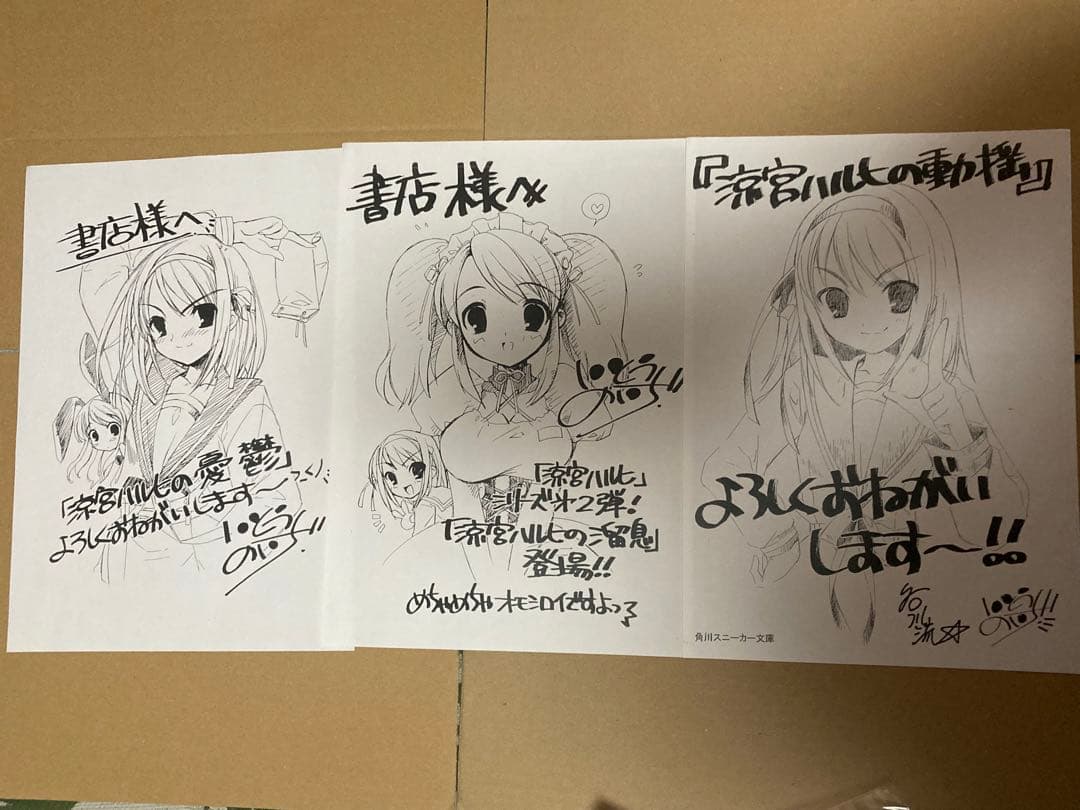 書店様へ
「涼宮ハルヒの憂鬱」
よろしくおねがいします〜
いとうのいぢ!!
書店様へ
いとうのいぢ!!
「涼宮ハルヒ」
シリーズオ2弾!
「涼宮ハルヒの溜息」
登場!!
めちゃめちゃオモシロイですよっ
『涼宮ハルヒの動揺』
よろしくおねがい
します〜!!
谷川流☆
いとうのいぢ!!
角川スニーカー文庫